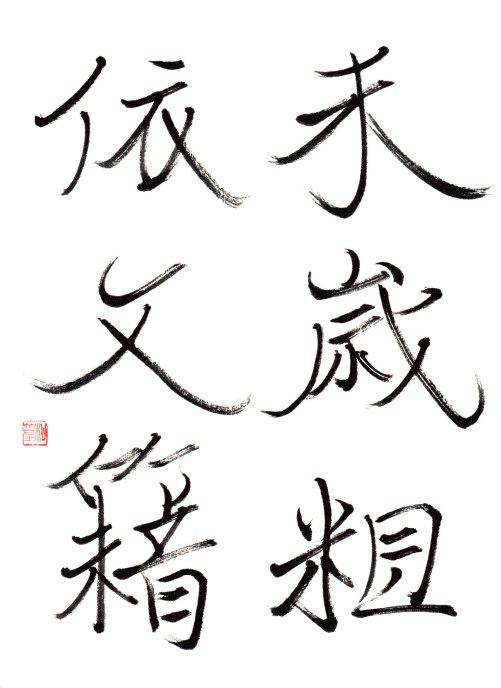 未歳粗
依文籍